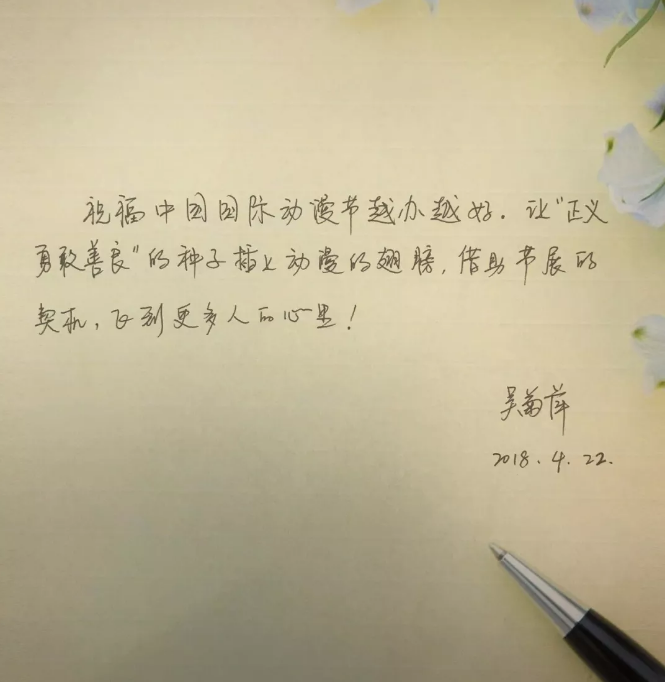 祝福中国国际动漫节越办越好。让“正义
勇敢善良”的种子插上动漫的翅膀，借助节展的
契机，飞到更多人的心里！
吴菊萍
2018.4.22.